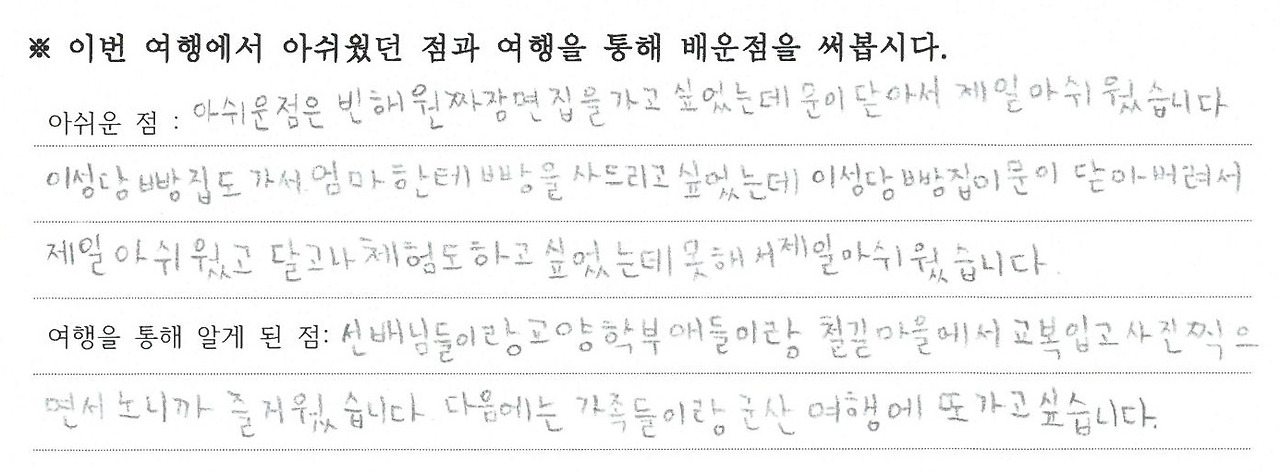 ※ 이번 여행에서 아쉬웠던 점과 여행을 통해 배운점을 써봅시다.
아쉬운 점 : 아쉬운점은 빈해원짜장면집을가고 싶었는데 문이닫아서 제일아쉬웠습니다
이성당빵집도 가서 엄마한테 빵을 사드리고싶었는데 이성당빵집이문이 닫아버려서
제일아쉬웠고 달고나체험도하고싶었는데못해서제일아쉬웠습니다.
여행을 통해 알게 된 점: 선배님들이랑교양학부애들이랑 철길마을에서교복입고사진찍으
면서노니까 즐거웠습니다 다음에는 가족들이랑군산 여행에 또가고싶습니다.